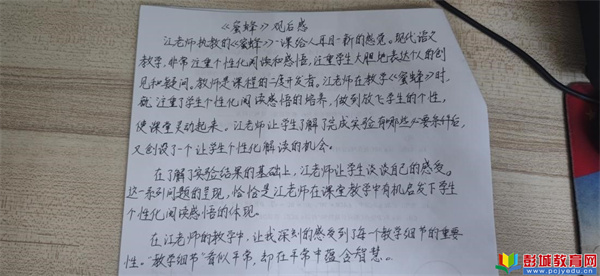 《蜜蜂》观后感
江老师执教的《蜜蜂》一课给人耳目一新的感觉。现代语文
教学，非常注重个性化阅读和感悟，注重学生大胆地表达个人的创
见和疑问。教师是课程的二度开发者。江老师在教学《蜜蜂》时，
就注重了学生个性化阅读感悟的培养，做到放飞学生的个性，
使课堂灵动起来，江老师让学生了解了完成实验有哪些必要条件后，
又创设了一个让学生个性化解读的机会。
在了解了实验结果的基础上，江老师让学生谈谈自己的感受。
这一系列问题的呈现，恰恰是江老师在课堂教学中有机启发下学生
个性化阅读感悟的体现。
在江老师的教学中，让我深刻的感受到了每个教学细节的重要
性。“教学细节”看似平常，却在平常中蕴含智慧。
彭城教育网
www.pcjyedu.cn